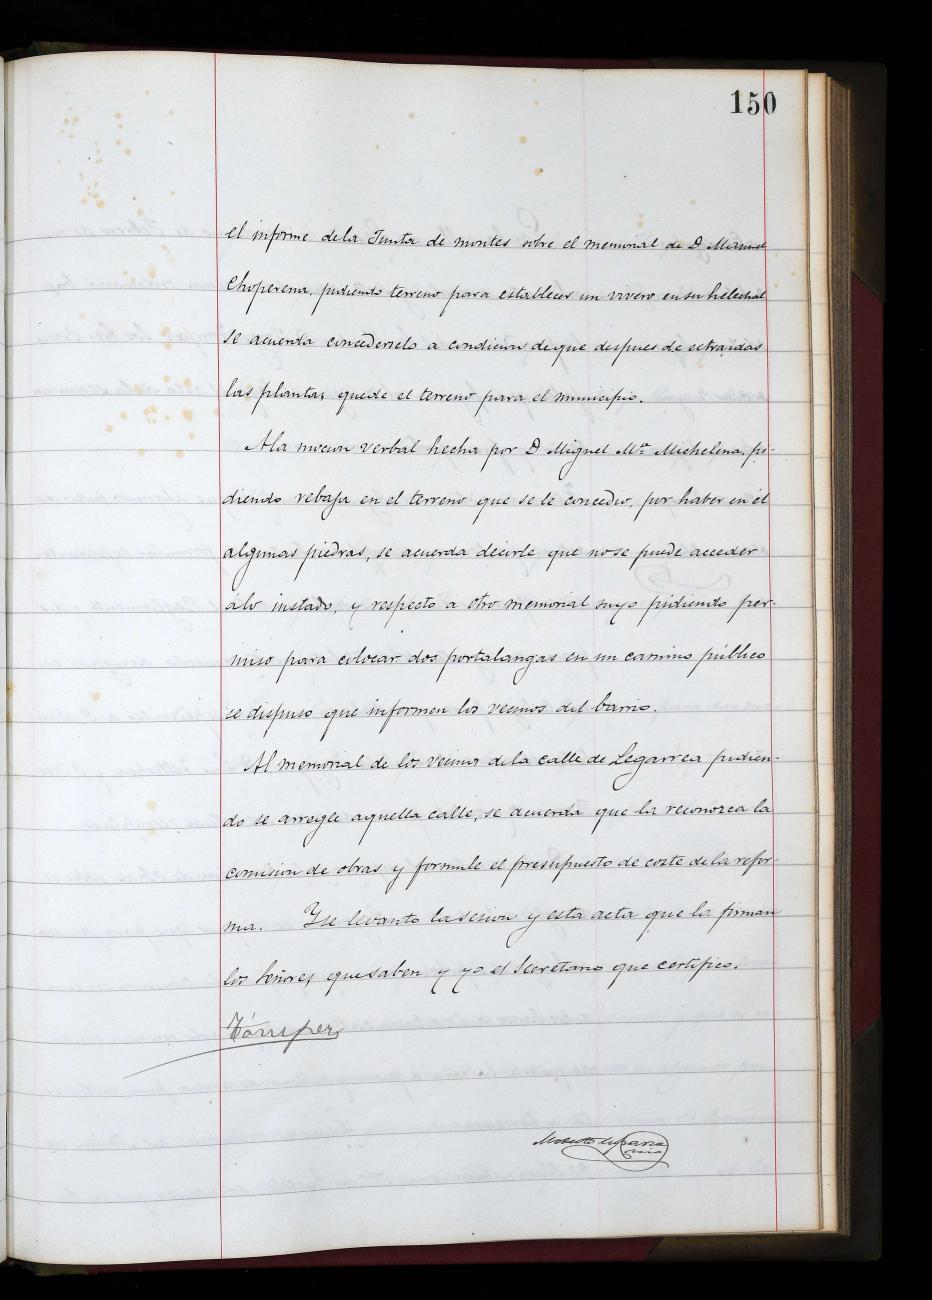 150
el informe dela Junta de montes sobre el memorial de D Manuel
Choperena, pidiendo terreno para establecer un vivero en su helechal
se acuerda concederselo a condicion de que despues de estraidas
las plantas quede el terreno para el municipio.
Ala mocion verbal hecha por D Miguel Mª Michelena, pi-
diendo rebaja en el terreno que se le concedio, por haber en él
algunas piedras, se acuerda décirle que no se puede acceder
alo instado, y respecto a otro memorial suyo pidiendo per-
miso para colocar dos portalangas en un camino público
se dispuso que informen los vecinos del barrio.
Al memorial de los vecinos de la calle de Legarrea pidien-
do se arregle aquella calle, se acuerda que la reconozca la
comision de obras y formule el presupuesto de coste de la refor-
ma. Y se levanto la sesion y esta acta que la firman
los Señores que saben y yo el Secretario que certifico.